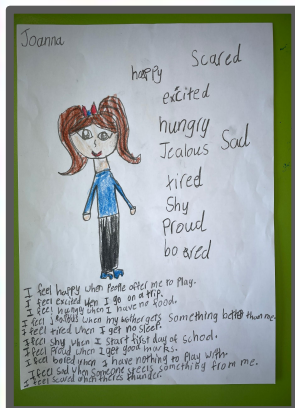 Joanna
Scared
happy
excited
hungry
Jealous Sad
tired
Shy
Proud
bored
I feel happy when People offer me to Play.
I feel excited when I go on a trip.
I feel hungry when I have no food.
I feel jealous when my bother gets something better than me.
I feel tired when I get no sleep.
I feel shy when I start first day of school.
I feel Proud when I get good marks.
I feel bored when I have nothing to Play with.
I feel Sad when someone steels something from me.
I feel scared when theres thunder.